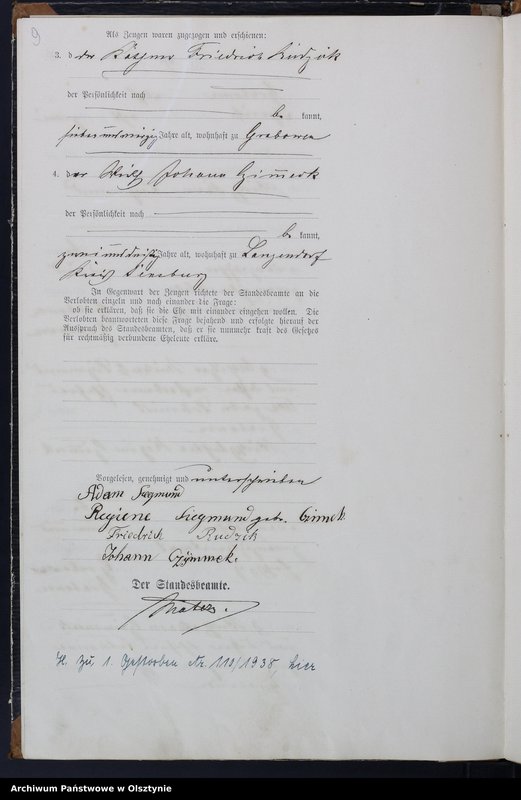 9
Als Zeugen waren zugezogen und erschienen:
3. der Kätzner Friedrich Rudzik
der Persönlichkeit nach
be kannt,
siebenundvierzig Jahre alt, wohnhaft zu Grabowen
4. der Johann Czimeck
der Persönlichkeit nach
be kannt,
zweiunddreißig Jahre alt, wohnhaft zu Langendorf
Kreis Sensburg
In Gegenwart der Zeugen richtete der Standesbeamte an die
Verlobten einzeln und nach einander die Frage:
ob sie erklären, daß sie die Ehe mit einander eingehen wollen. Die
Verlobten beantworteten diese Frage bejahend und erfolgte hierauf der
Ausspruch des Standesbeamten, daß er sie nunmehr kraft des Gesetzes
für rechtmäßig verbundene Eheleute erkläre.
Vorgelesen, genehmigt und unterschrieben
Adam Siegmund
Regiene Siegmund geb. Czimek
Friedrich Rudzik
Johann Czÿmmek.
Der Standesbeamte.
H. zu 1. Gestorben Nr. 110/1938, hier
Archiwum Państwowe w Olsztynie